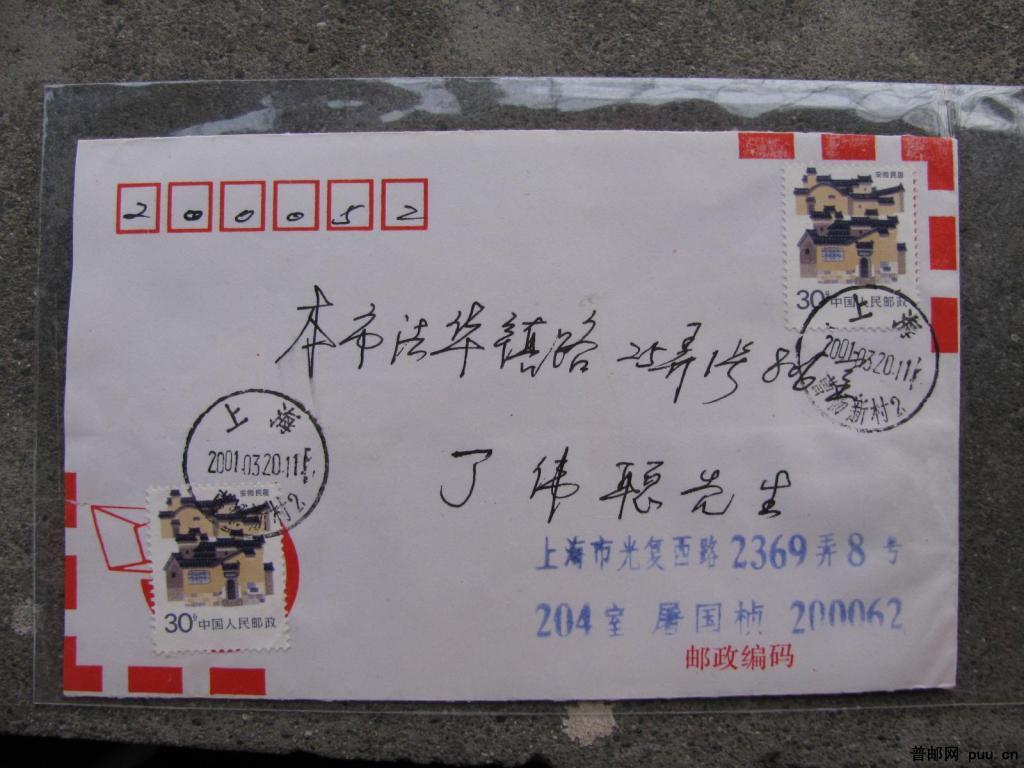 200052
安徽民居
30分 中国人民邮政
上海
2001.03.20.11
新村2
本市法华镇路 25弄1号
丁伟聪先生
上海
2001.03.20.11
新村2
安徽民居
30分 中国人民邮政
上海市光复西路2369弄8号
204室 屠国桢 200062
邮政编码
普邮网 puu.cn